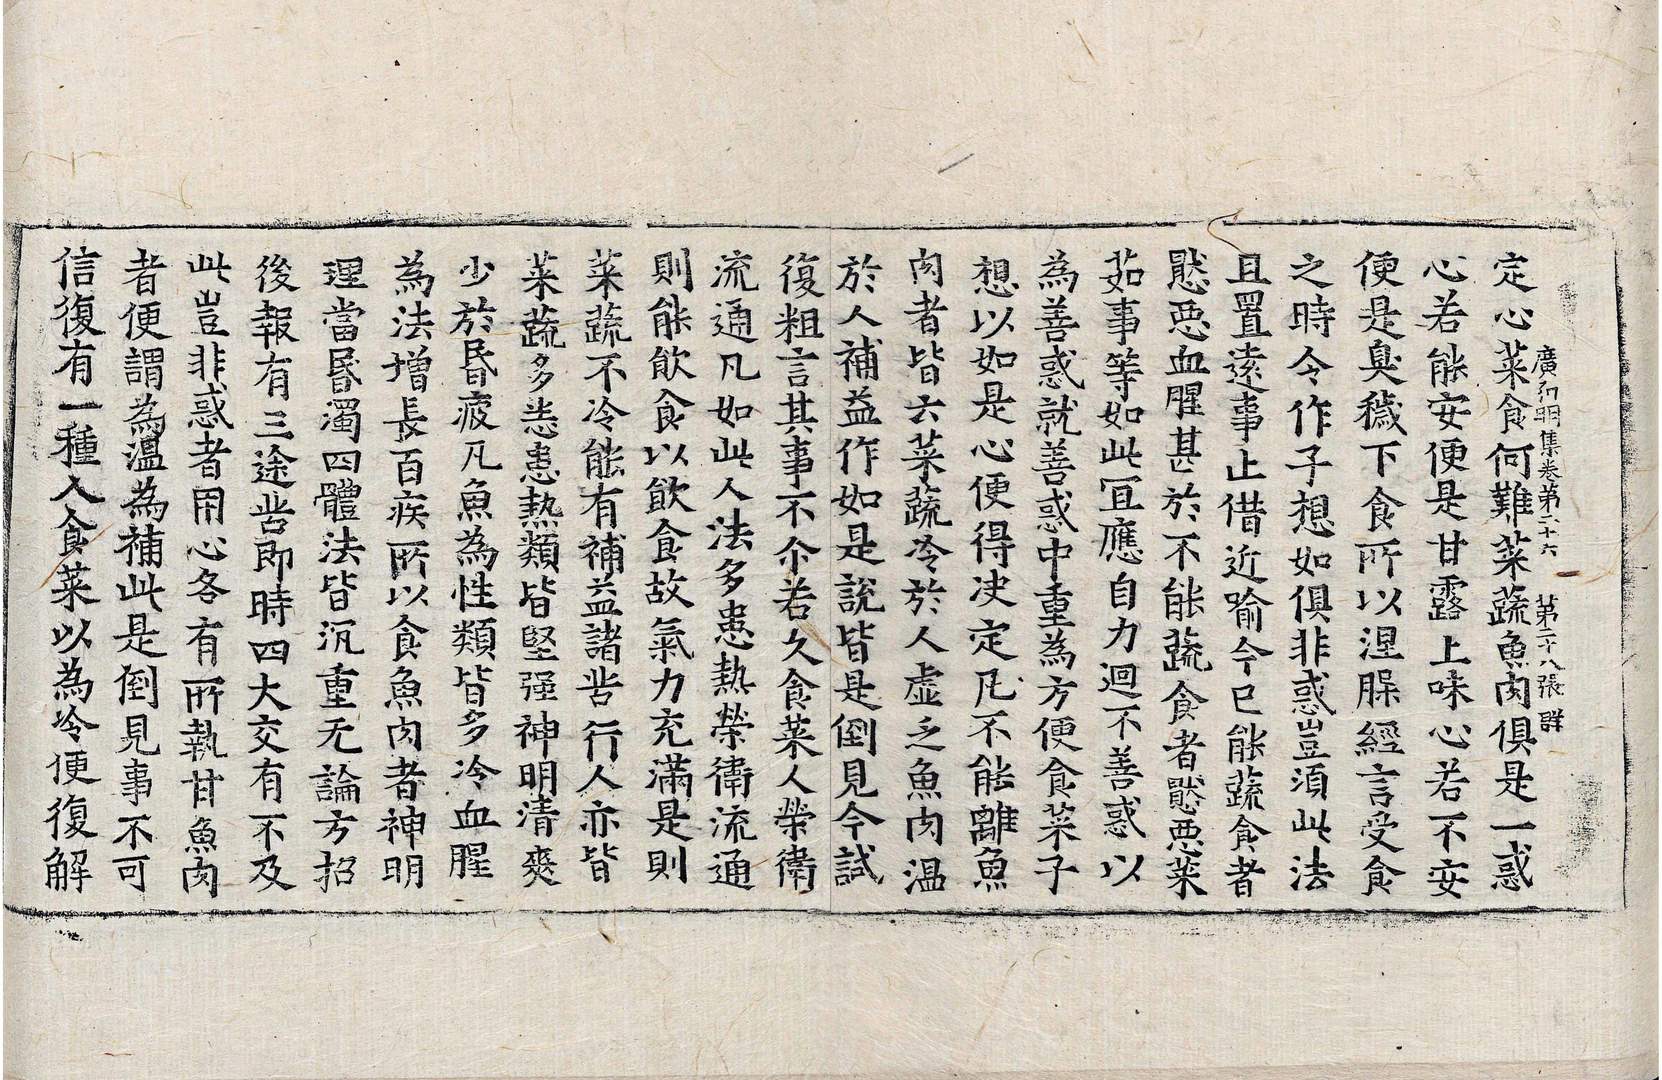 廣弘明集卷第二十六 第二十八張 群
定心菜食何難菜蔬魚肉俱是一惑
心若能安便是甘露上味心若不安
便是臭穢下食所以涅脵經言受食
之時令作子想如俱非惑豈須此法
且置遠事止借近喻今已能蔬食者
猒惡血腥甚於不能蔬食者猒惡菜
茹事等如此冝應自力迴不善惑以
為善惑就善惑中重為方便食菜子
想以如是心便得决定凡不能離魚
肉者皆云菜蔬冷於人虛乏魚肉温
於人補益作如是說皆是倒見今試
復粗言其事不尒若久食菜人榮衛
流通凡如此人法多患熱榮衛流通
則能飲食以飲食故氣力充滿是則
菜蔬不冷能有補益諸苦行人亦皆
菜蔬多悉患熱類皆堅强神明清爽
少於昏疲凡魚為性類皆多冷血腥
為法增長百疾所以食魚肉者神明
理當昏濁四體法皆沉重无論方招
後報有三途苦即時四大交有不及
此豈非惑者用心各有所執甘魚肉
者便謂為溫為補此是倒見事不可
信復有一種人食菜以為冷便復解